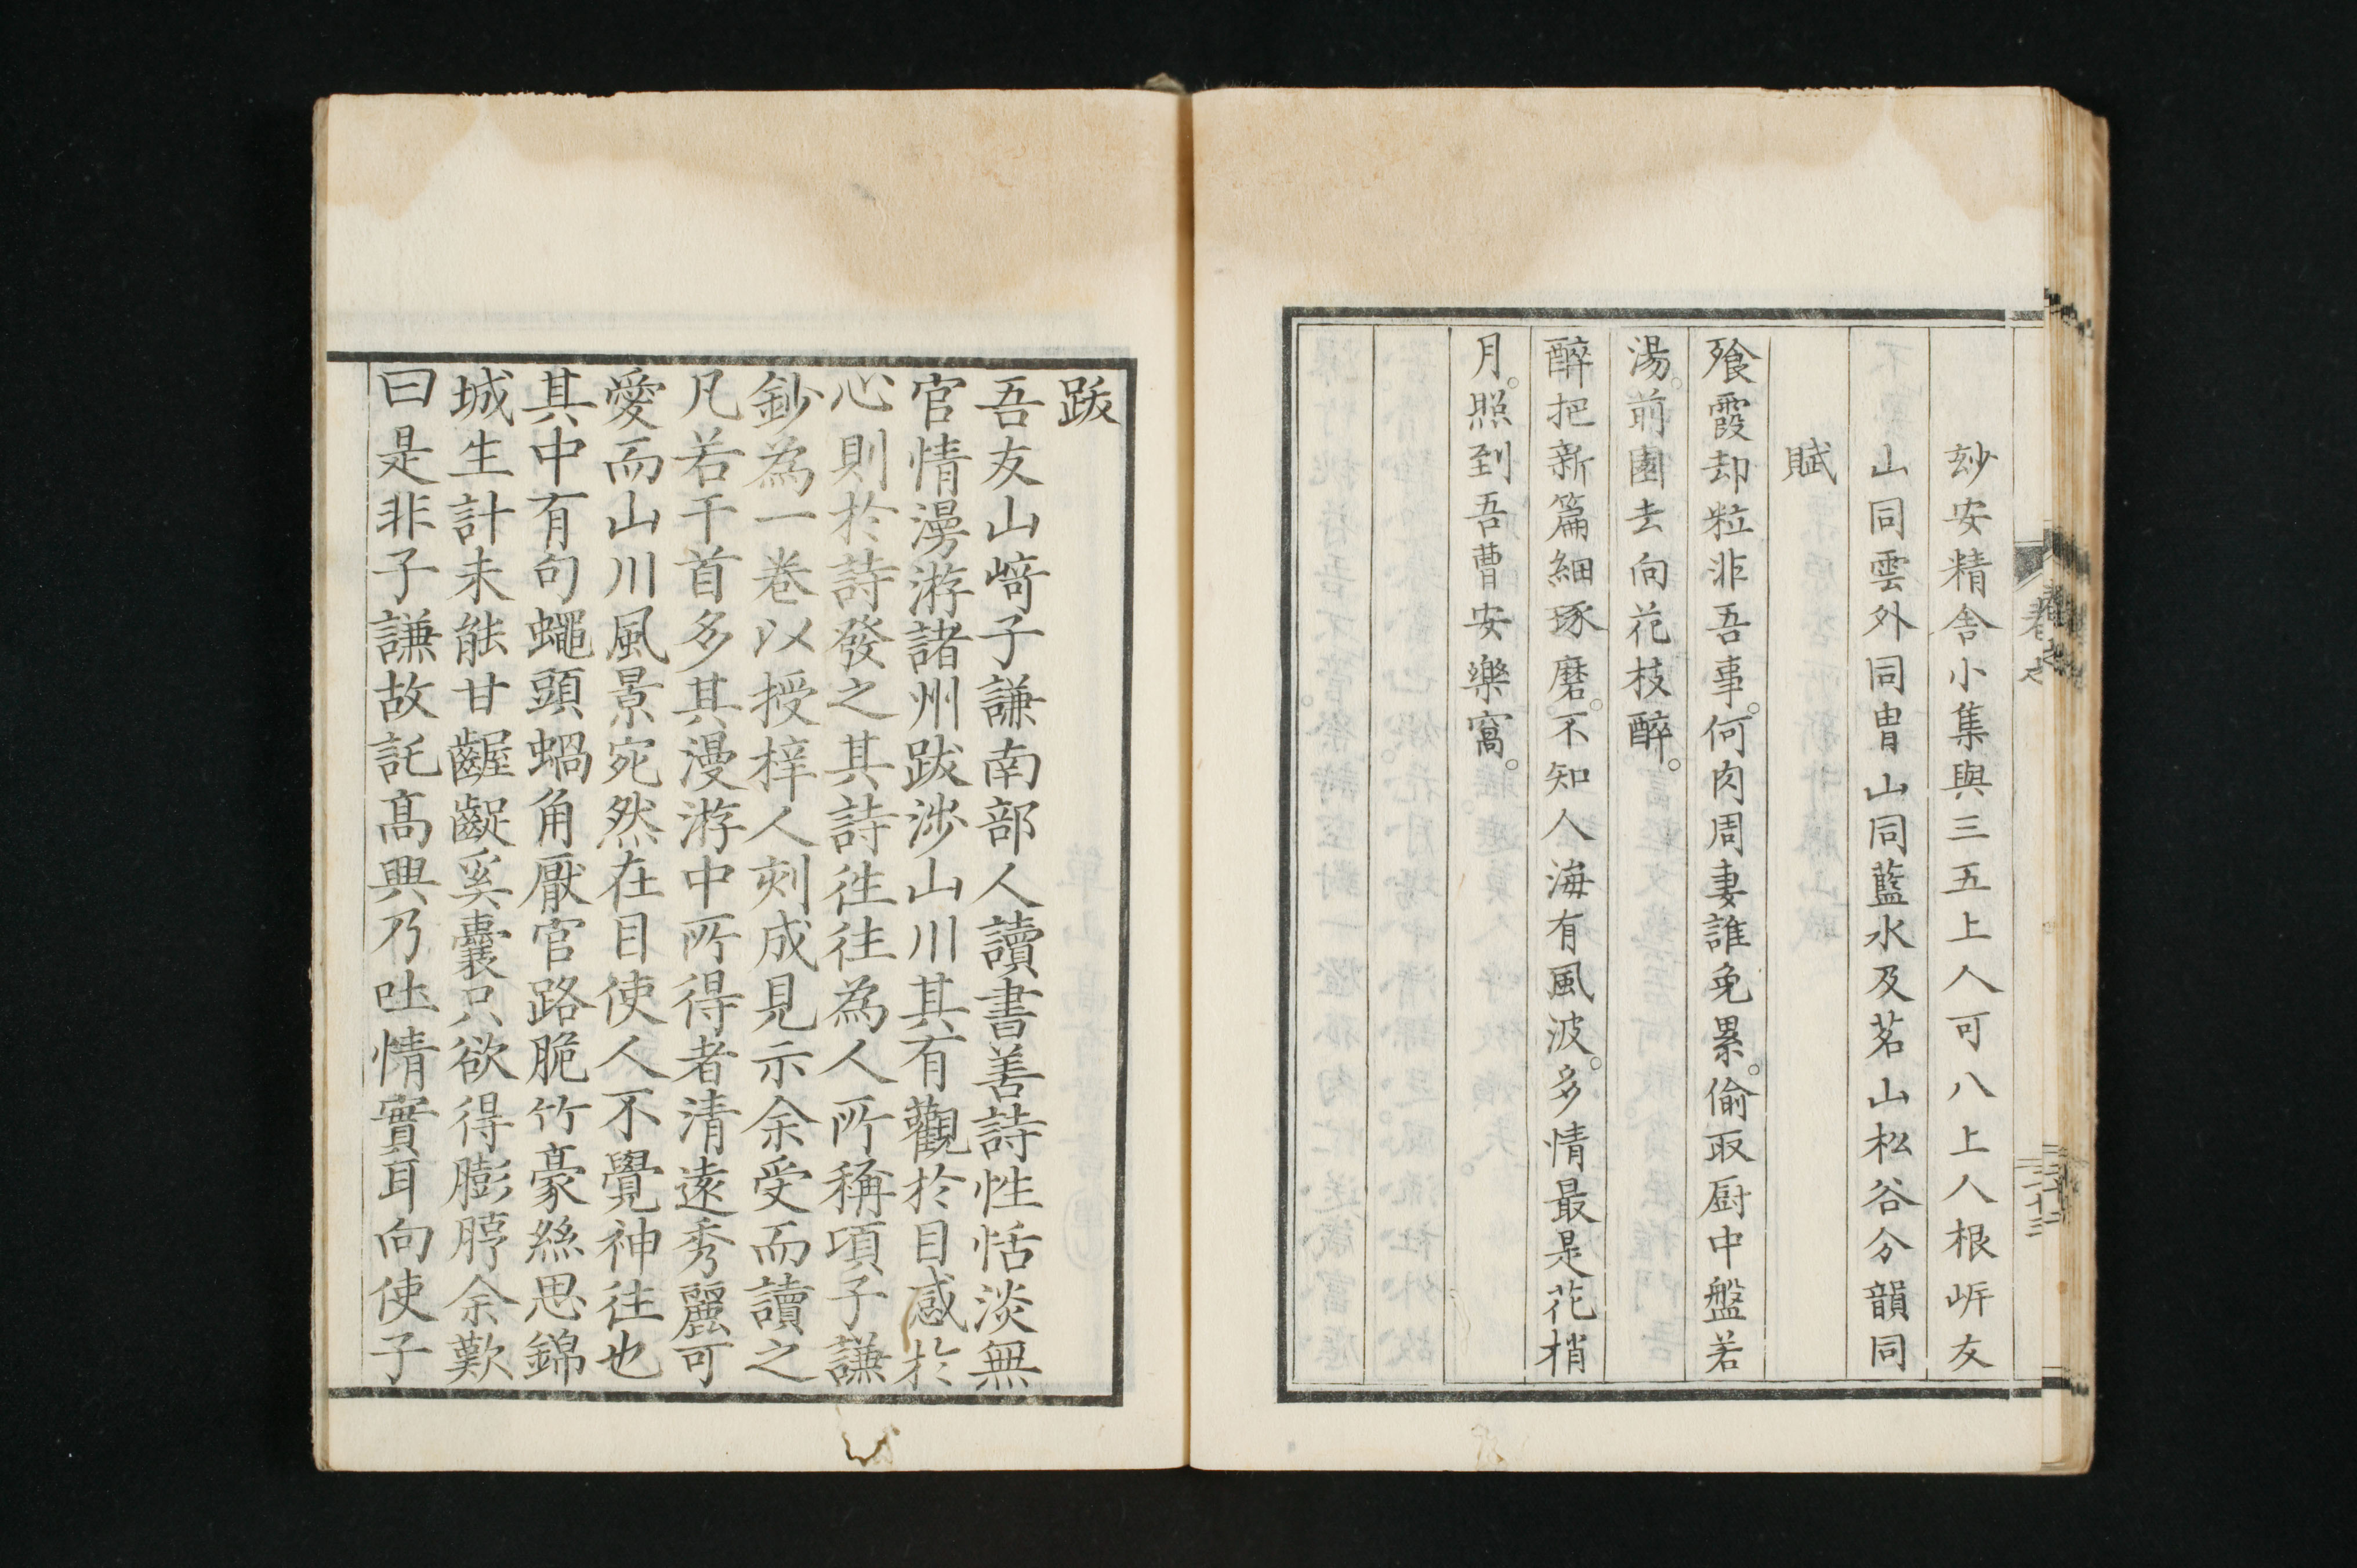 玅安精舎小集與三五上人可八上人根岓友
山同雲外同冑山同藍水及茗山松谷分韻同
賦
飱霞却粒非吾事。何肉周妻誰免累。偷取厨中盤若
湯。前園去向花枝醉。
醉把新篇細琢磨。不知人海有風波。多情最是花梢
月。照到吾曹安樂窩。
跋
吾友山﨑子謙南部人讀書善詩性恬淡無
官情漫游諸州跋涉山川其有觀於目感於
心則於詩發之其詩徃徃為人所稱項子謙
鈔為一卷以授梓人刻成見示余受而讀之
凡若干首多其漫游中所得者清遠秀麗可
愛而山川風景宛然在目使人不覺神徃也
其中有句蠅頭蝸角厭官路脆竹豪絲思錦
城生計未能甘齷齪奚囊只欲得膨脝余歎
曰是非子謙故託髙興乃吐情實耳向使子